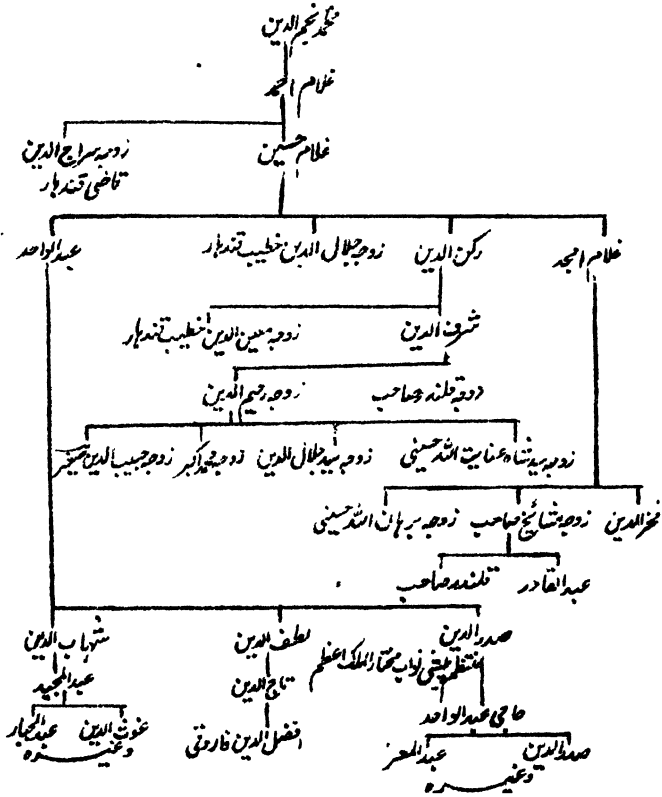 محمد نجم الدین
غلام احمد
زوجہ سراج الدین
قاضی قندہار
غلام حسین
غلام امجد
رکن الدین
زوجہ جلال الدین خطیب قندہار
عبدالواحد
شرف الدین
زوجہ معین الدین خطیب قندہار
زوجہ قلندر صاحب
زوجہ رحیم الدین
زوجہ سید شاہ عنایت اللہ حسینی
زوجہ سید جلال الدین
زوجہ محمد اکبر
زوجہ حبیب الدین صغیر
فخر الدین
زوجہ مشائخ صاحب
زوجہ برہان اللہ حسینی
عبدالقادر
قلندر صاحب
صدر الدین
منتظم نواب مختار الملک اعظم
لطف الدین
شہاب الدین
تاج الدین
عبدالمجید
حاجی عبدالواحد
افضل الدین فاروقی
غوث الدین
عبدالجبار
وغیرہ
صدر الدین
عبدالمعز
وغیرہ